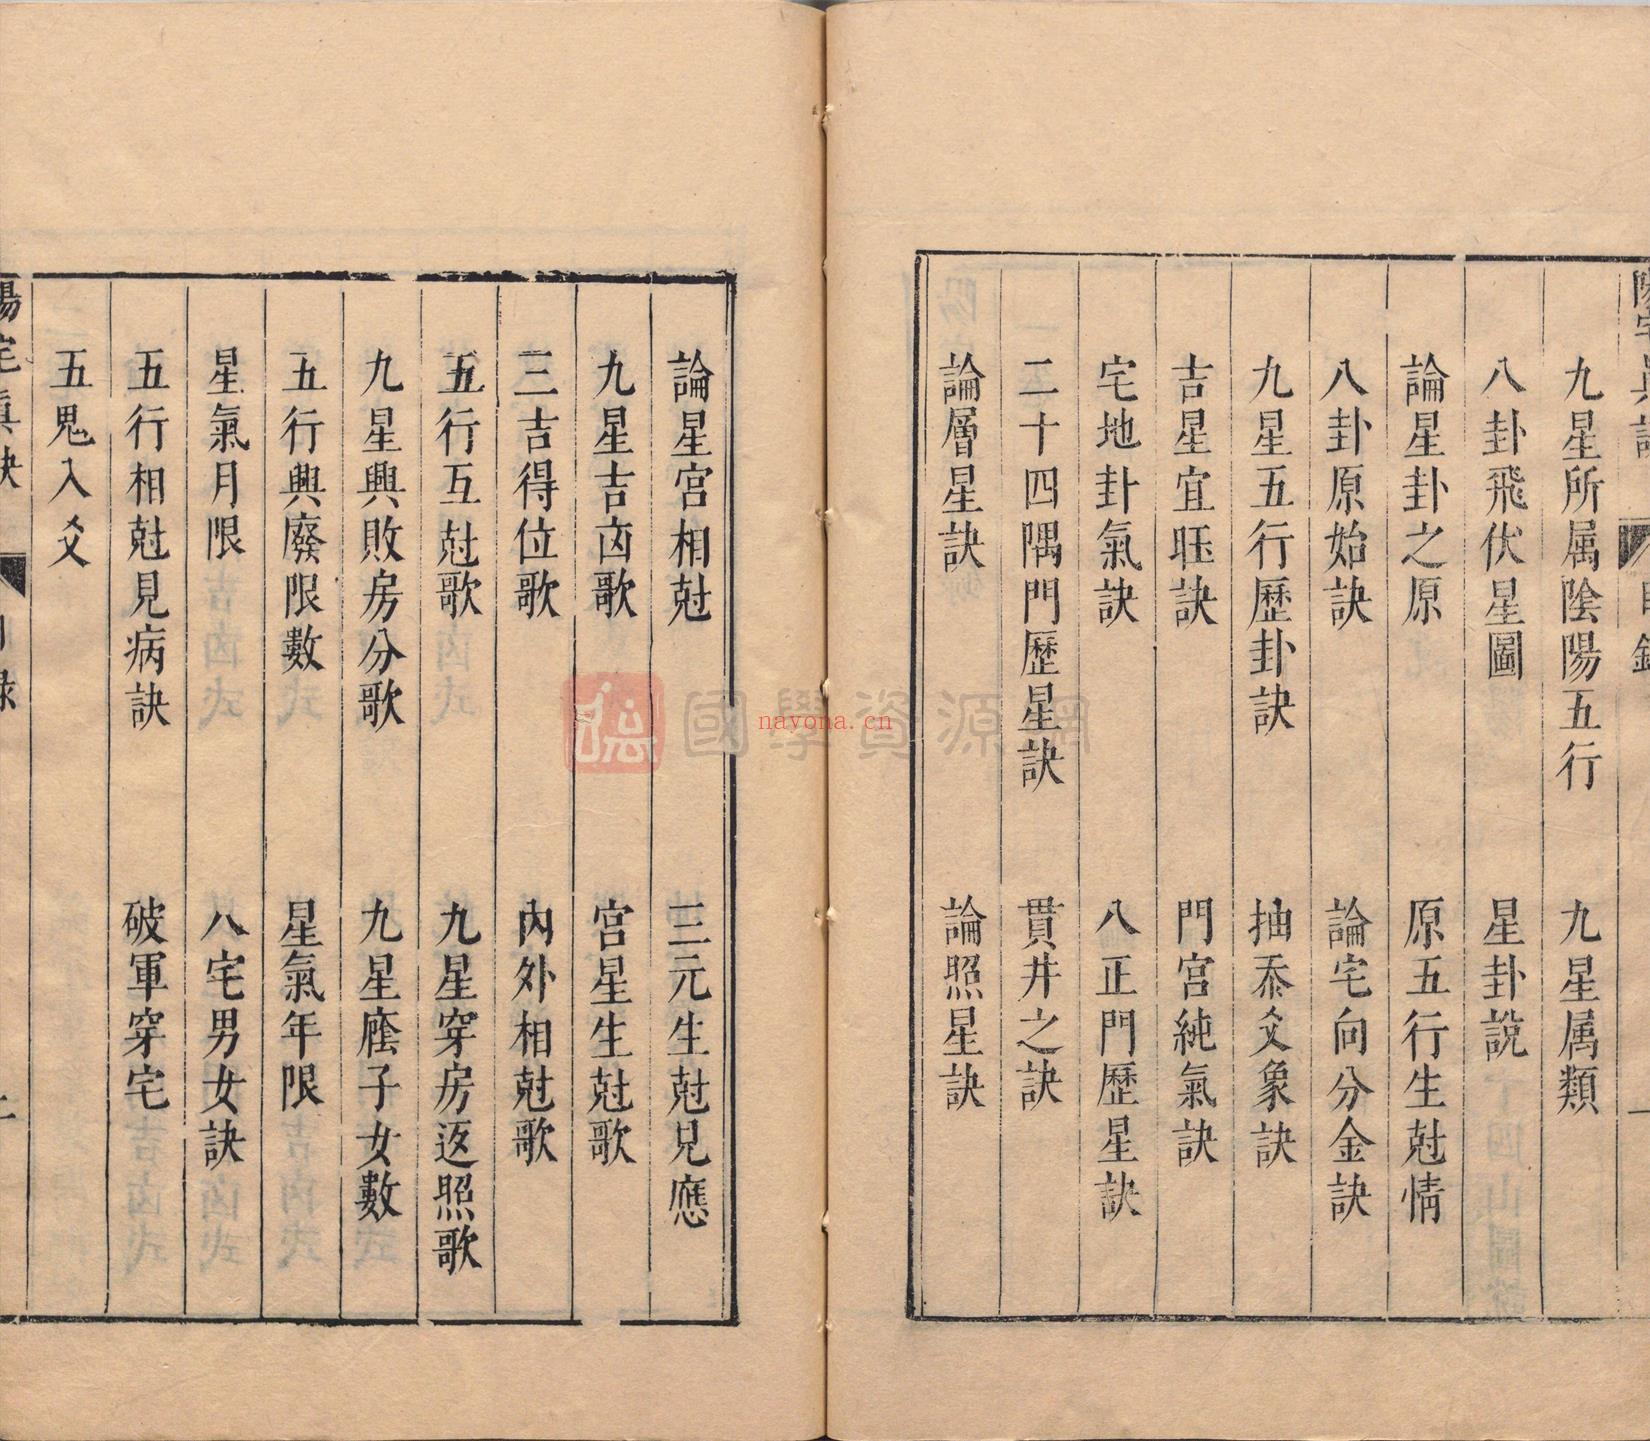 九星所属陰陽五行　九星属類
八卦飛伏星圖　星卦説
論星卦之原　原五行生尅情
八卦原始訣　論宅向分金訣
九星五行歷卦訣　抽爻象訣
吉星宜旺訣　門宮純氣訣
宅地卦氣訣　八正門歷星訣
二十四隅門歷星訣　貫井之訣
論層星訣　論照星訣
論星宮相尅　三元生尅見應
九星吉凶歌　宮星生尅歌
三吉得位歌　內外相尅歌
五行互尅歌　九星穿房返照歌
九星興敗房分歌　九星廕子女數
五行興廢限數　星氣年限
星氣月限　八宅男女訣
五行相尅見病訣　破軍穿宅
五鬼入爻
陽宅真訣　目錄
國學資源網
nayona.cn